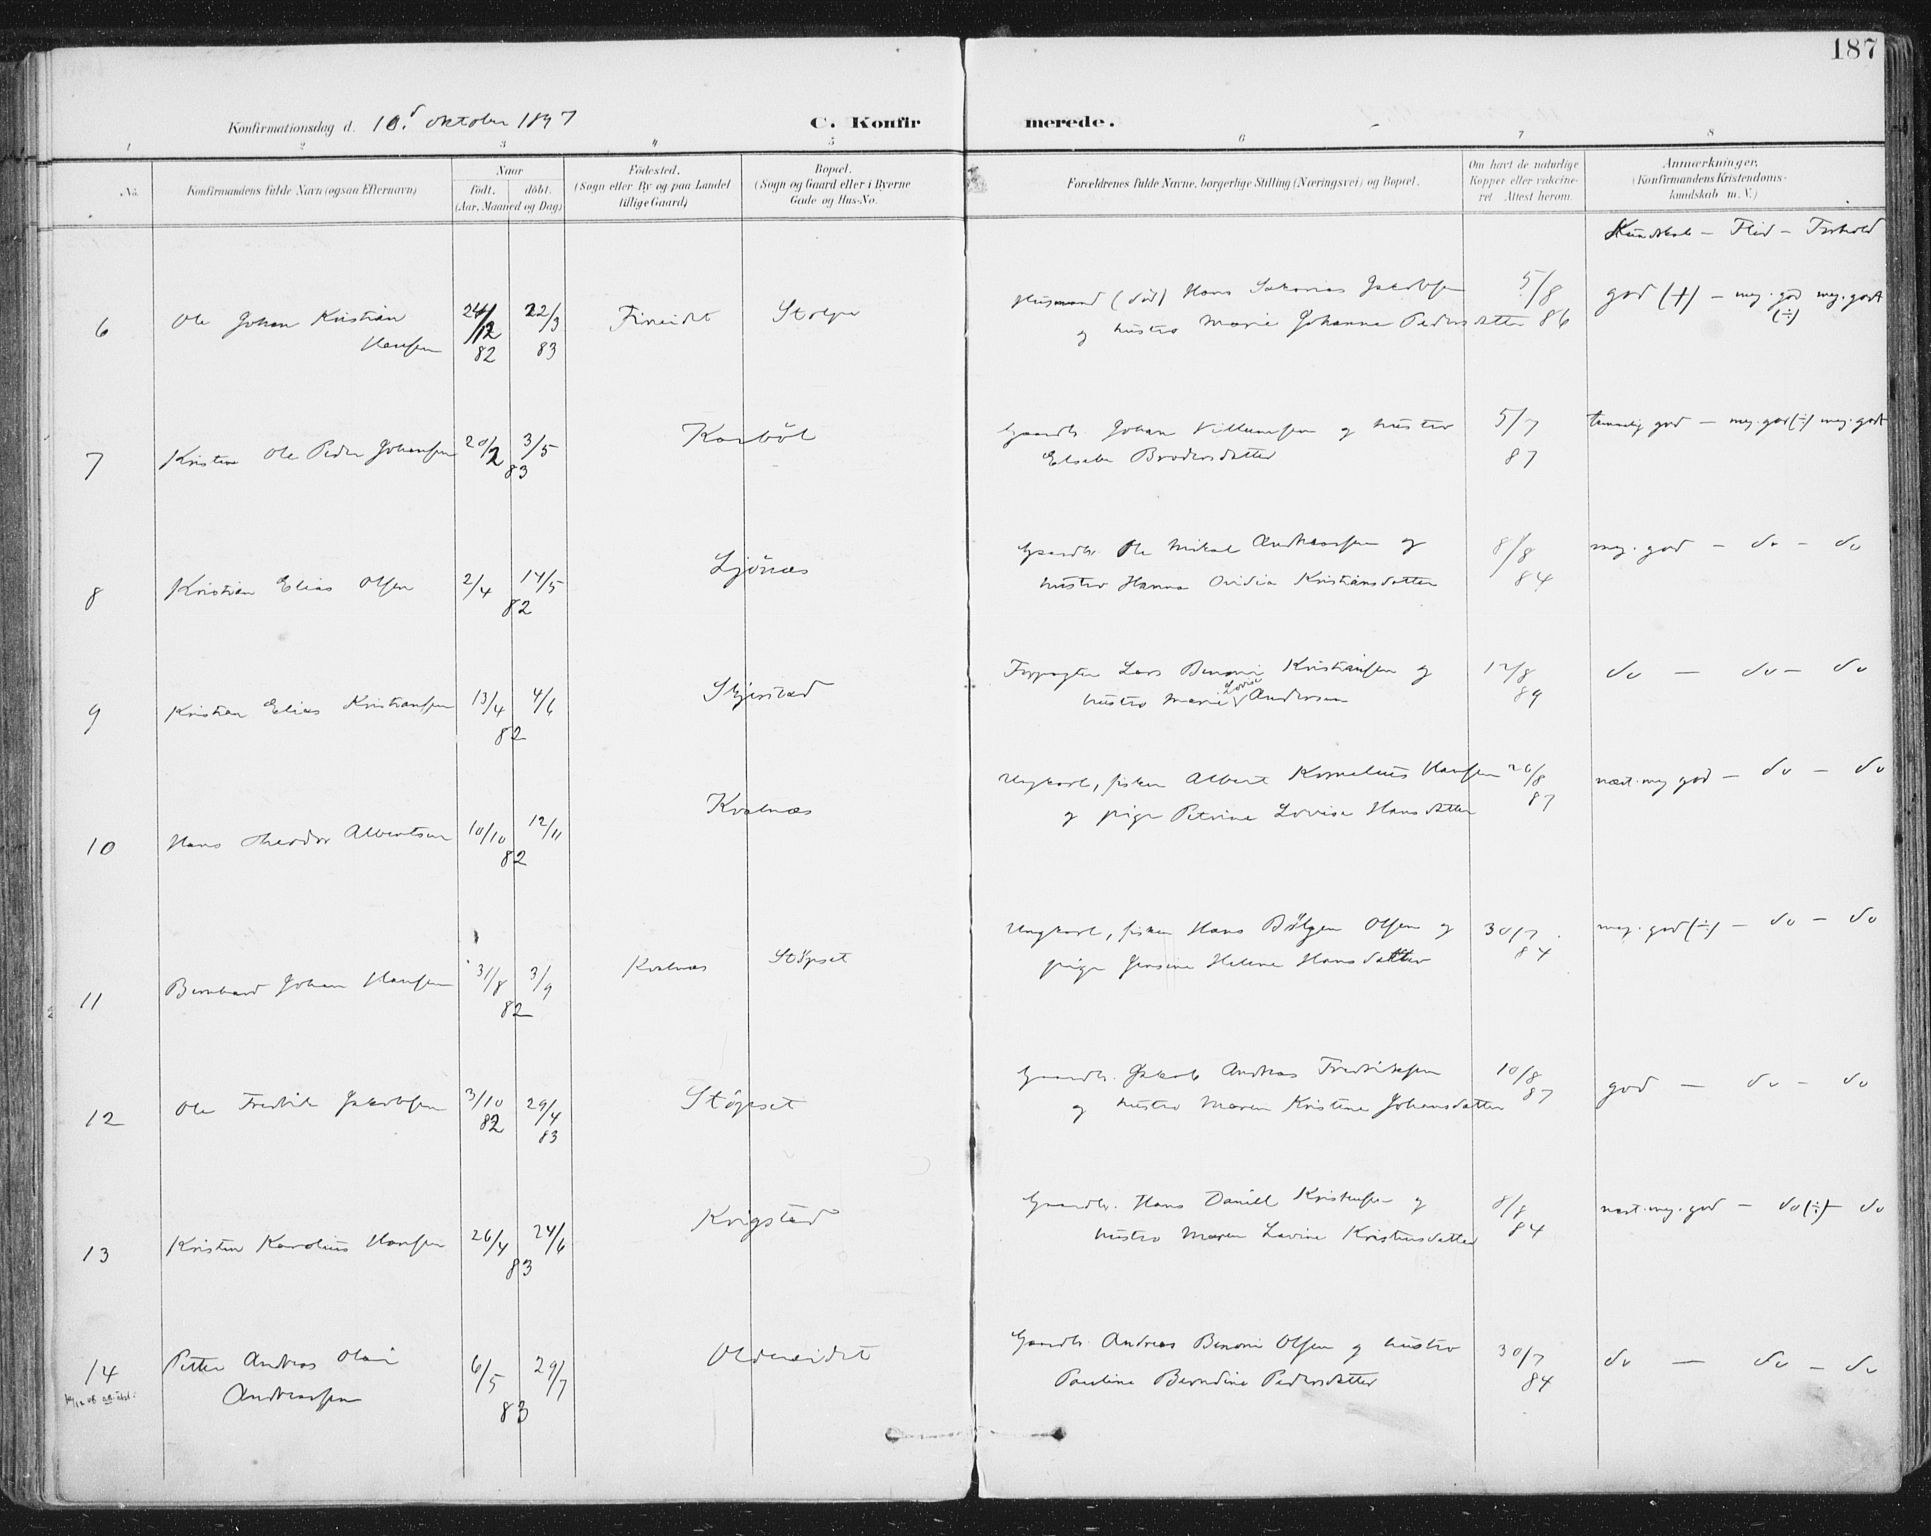 187
Konfirmationsdag d. 10.d oktober 1897
C. Konfirmerede.
1 2 3 4 5 6 7 8
No. Konfirmandens fulde Navn (ogsaa Efternavn)
Naar født. døbt. (Aar, Maaned og Dag)
Fødested. (Sogn eller By og paa Landet tillige Gaard)
Bopæl. (Sogn og Gaard eller i Byerne Gade og Hus-No.
Forældrenes fulde Navne, borgerlige Stilling (Næringsvei) og Bopæl.
Om havt de naturlige Kopper eller vakcineret Attest herom.
Anmærkninger. (Konfirmandens Kristendomskundskab m. V.)
Kundskab - Flid - Forhold
6 Ole Johan Kristian 24/12 22/3 Fineidet Husmand (død) Hans Sakarias Jakobsen 5/8 god (+) - meg. god meg. godt
Hansen 82 83 og hustru Marie Johanna Pedersdatter 86 (÷)
7 Kristen Ole Peder Johansen 20/2 3/5 Karbøl Gaardbr. Johan Villumsen og hustru 5/7 temmelig god - meg. god (÷) meg. godt
83 Elsebe Brodersdatter 87
8 Kristian Elias Olsen 2/4 14/5 Ljønæs Gaardbr. Ole Mikal Andreassen og 8/8 meg. god - do - do
82 hustru Hanna Ovidia Kristiansdatter 84
9 Kristian Elias Kristiansen 13/4 4/6 Skjerstad Forpagter Lars Benoni Kristiansen og 12/8 do - do - do
82 hustru Marie Lovise Andersen 89
10 Hans Theodor Albertsen 10/10 12/11 Kvalnæs Ungkarl, fisker Albert Kornelius Hansen 26/8 næst. meg god - do - do
82 og pige Petrine Lovise Hansdatter 87
11 Bernhard Johan Hansen 31/8 3/9 Kvalnæs Støpset Ungkarl, fisker Hans Bølgen Olsen og 30/7 meg. god (÷) - do - do
82 pige Jensine Helene Hansdatter 84
12 Ole Fredrik Jakobsen 3/10 29/4 Støpset Gaardbr. Jakob Andreas Fredriksen 10/8 god - do - do
82 83 og hustru Maren Kristine Johansdatter 87
13 Kristen Karolius Hansen 26/4 24/6 Kvigstad Gaardbr. Hans Daniel Kristensen og 8/8 næst. meg. god - do (÷) - do
83 hustru Maren Lavine Kristensdatter 84
14 Petter Andreas Olai 6/5 29/7 Oldereidet Gaardbr. Andreas Benoni Olsen og hustru 30/7 do - do - do
Andreassen 83 Pauline Berndine Pedersdatter 84